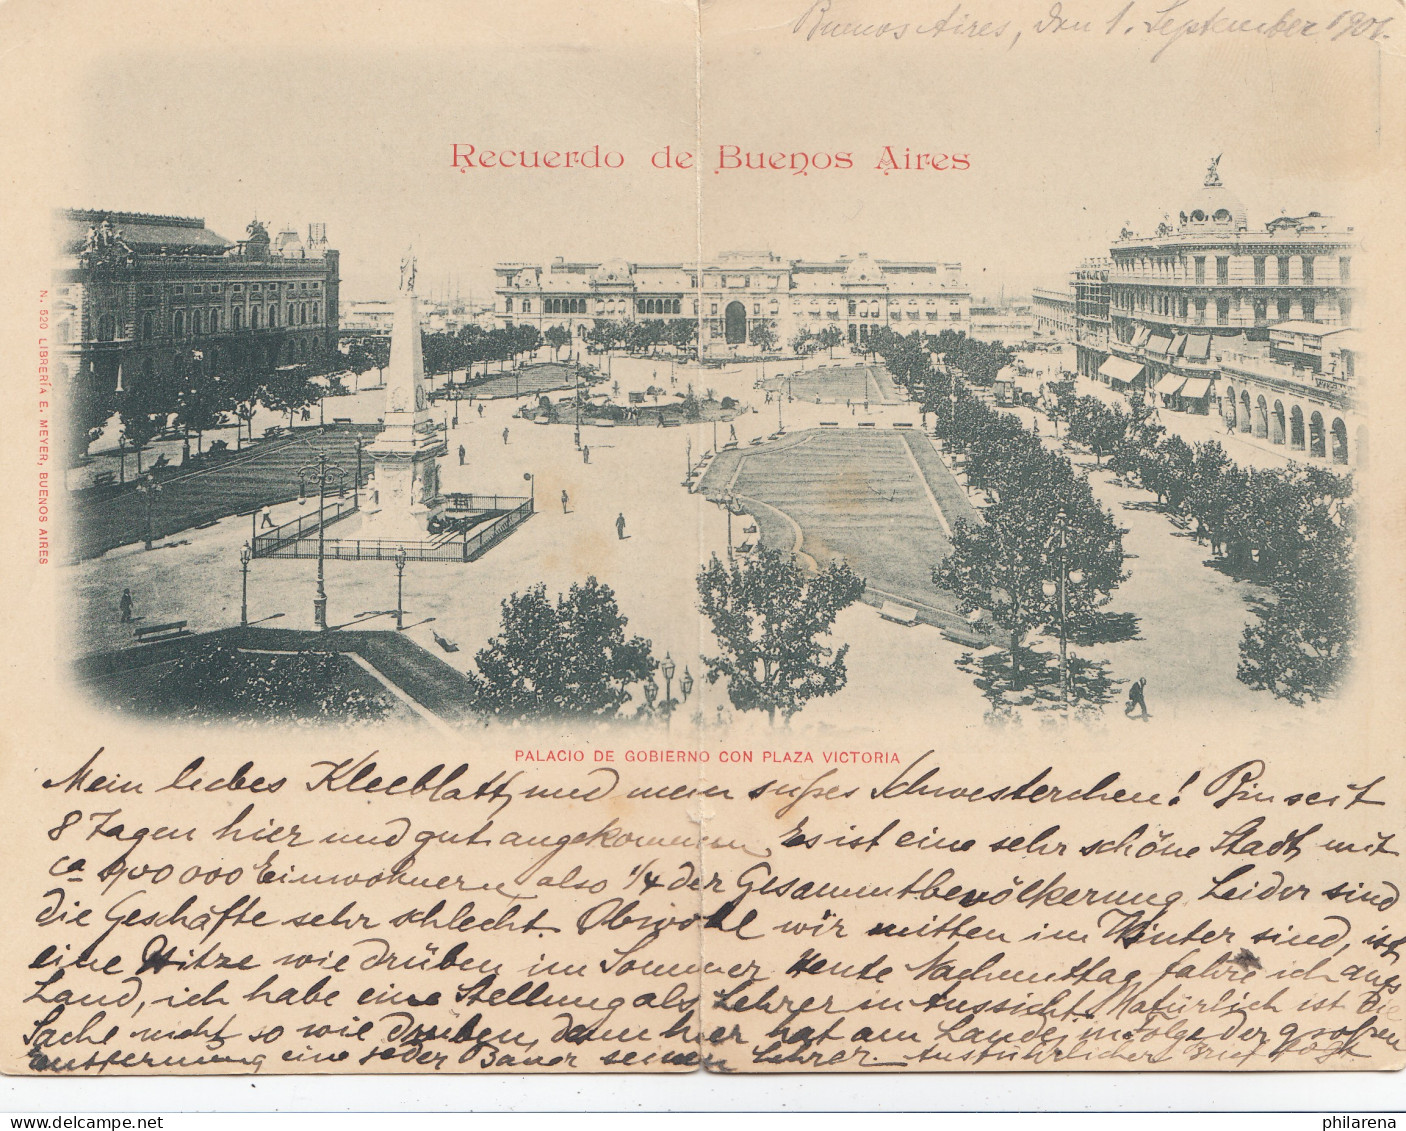 Buenos Aires, den 1. September 1901.
Recuerdo de Buenos Aires
N. 520 LIBRERÍA E. MEYER, BUENOS AIRES
PALACIO DE GOBIERNO CON PLAZA VICTORIA
Mein liebes Kleeblatt, und mein süßes Schwesterchen! Bin seit
8 Tagen hier und gut angekommen. Es ist eine sehr schöne Stadt, mit
ca 900 000 Einwohnern, also 1/4 der Gesammtbevölkerung. Leider sind
die Geschäfte sehr schlecht. Obwohl wir mitten im Winter sind, ist
eine Hitze wie drüben im Sommer. Heute Nachmittag fahre ich aufs
Land, ich habe eine Stellung als Lehrer in Aussicht. Natürlich ist die
Sache nicht so wie drüben, denn hier hat am Lande, infolge der großen
Entfernung eine jeder Bauer seinen Lehrer. Ausführlicher Brief folgt.
philarena